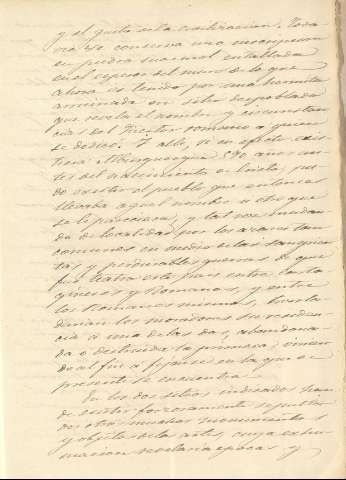 y el gusto en la civilizacion. Toda
via se conserva una inscripcion
en piedra sucunal entallada
en el espesor del muro de lo que
ahora es tenido por una hermita
arruinada en sitio despoblado
que revela el nombre y circunstan
cias del Pretor romano a quien
se dedicó. Y alli, si en efecto exis
tiera Alburquerque 190 años an
tes del nacimiento de Cristo, pu
do existir el pueblo que entonces
llevaba aquel nombre u otro que
se le pareciera, y tal vez mudan
do de localidad por los azares tan
comunes en medio de las sangrien
tas y perdurables guerras de que
fué teatro este pais entre Carta
gineses y Romanos, y entre
los Romanos mismos, trasla
darian los moradores su residen
cia á una de las dos, abandona
da o destruida la primera; vinien
do al fin a fijarse en la que al
presente se encuentra.
En los dos sitios indicados han
de existir forzosamente sepulta
dos otros muchos monumentos
y objetos de las artes, cuya exhu
macion revelaria epocas, y